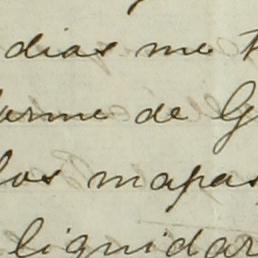 dias me
arme de G
los mapas
liquidar